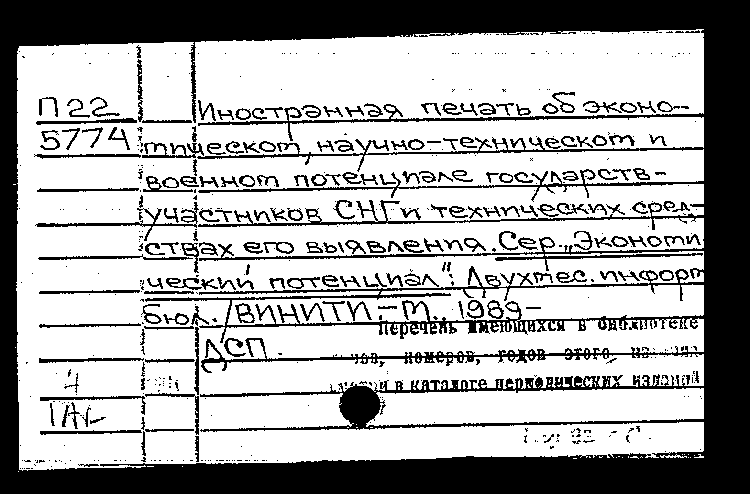 П22
5774
Иностранная печать об эконо-
мическом, научно-техническом и
военном потенциале государств-
участников СНГ и технических сред-
ствах его выявления. Сер. „Экономи
ческий потенциал": Двухмес. информ
бюл. / ВИНИТИ. – М., 1989 –
Перечень имеющихся в библиотеке
ДСП.
номеров, годов этого
в каталоге периодических изданий
4